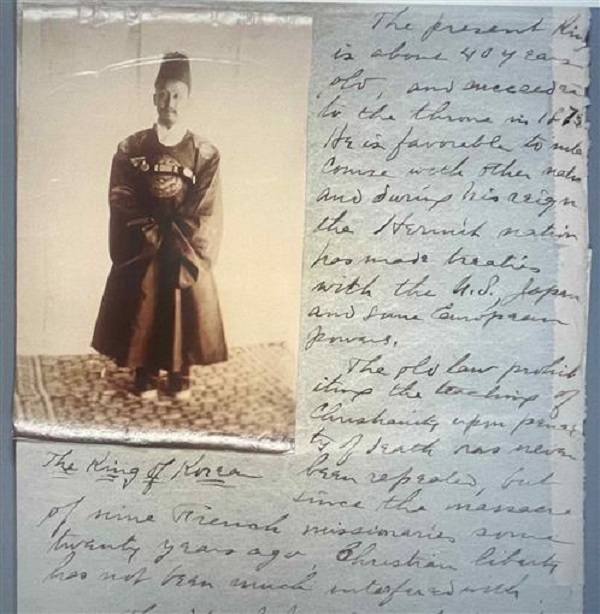 The present King
is about 40 years
old, and succeeded
to the throne in 1873.
He is favorable to inter
course with other nations
and during his reign
the Hermit nation
has made treaties
with the U.S., Japan
and some European
powers.
The old law prohib
iting the teaching of
Christianity upon penal
ty of death has never
been repealed, but
since the massacre
of nine French missionaries some
twenty years ago, Christian liberty
has not been much interfered with.
The King of Korea